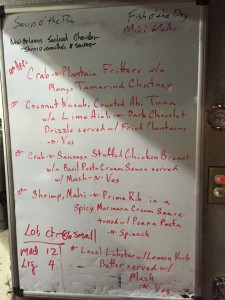 Soup o' the Day
Fish o' the Day
New Orleans Seafood Chowder
Mahi Mahi
Shrimp, & Sausage
App
Crab-n-Plantain Fritters w/a
Mango Tamarind Chutney
* Coconut Wasabi Crusted Ahi Tuna
w/a Lime Aioli -n- Dark Chocolate
Drizzle served w/ Fried Plantains
-n- Veg
* Crab-n-Sausage Stuffed Chicken Breast
w/a Basil Pesto Cream Sauce served
w/ Mash-n-Veg
* Shrimp, Mahi -n- Prime Rib in a
Spicy Marinara Cream Sauce
tossed w/ Penne Pasta
-n- Spinach
Lob ctr small
med 12
Lrg 4
* Local Lobster w/ Lemon Herb
Butter served w/
Mash
-n- Veg